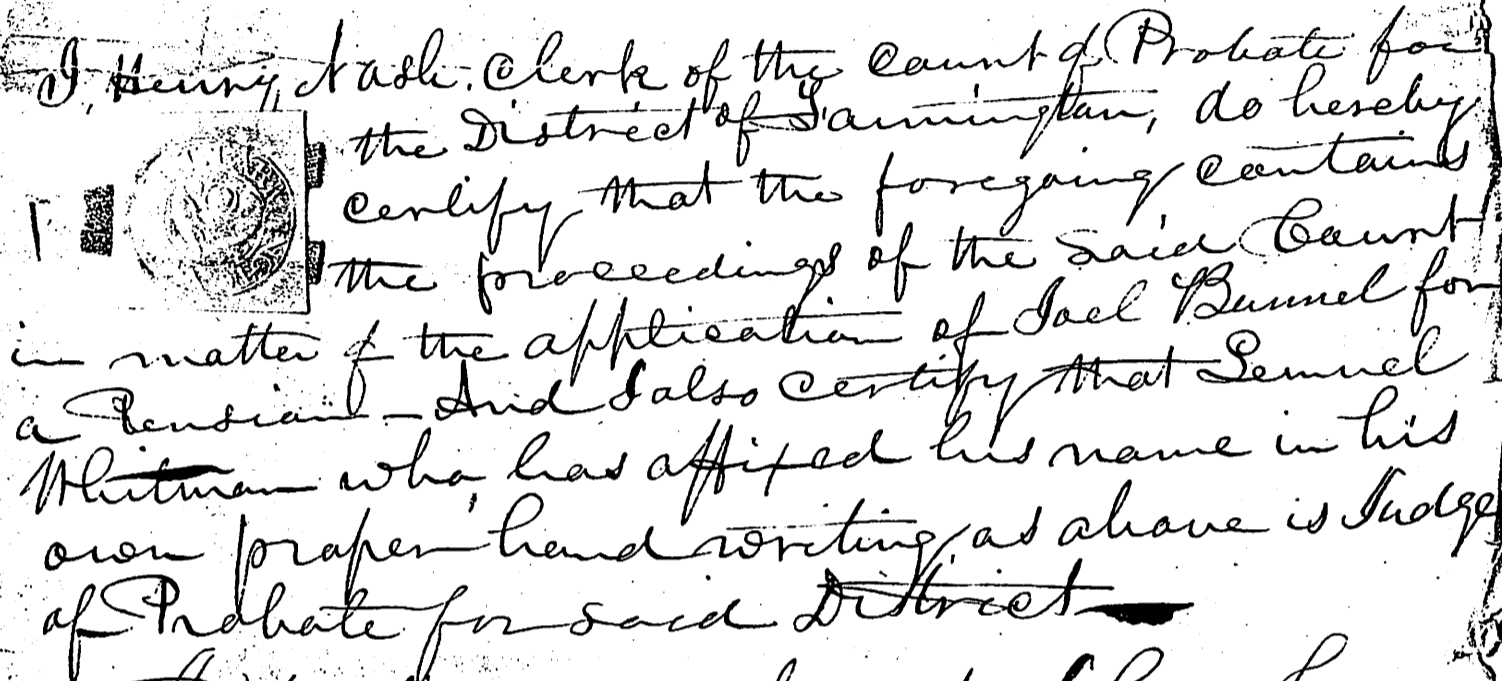 I, Henry Nash, Clerk of the Court of Probate for
the District of Farmington, do hereby
certify that the foregoing contains
the proceedings of the said Court
in matter of the application of Joel Bunnel for
a Pension — And I also certify that Lemuel
Whitman who, has affixed his name in his
own proper hand writing, as above is Judge
of Probate for said District —